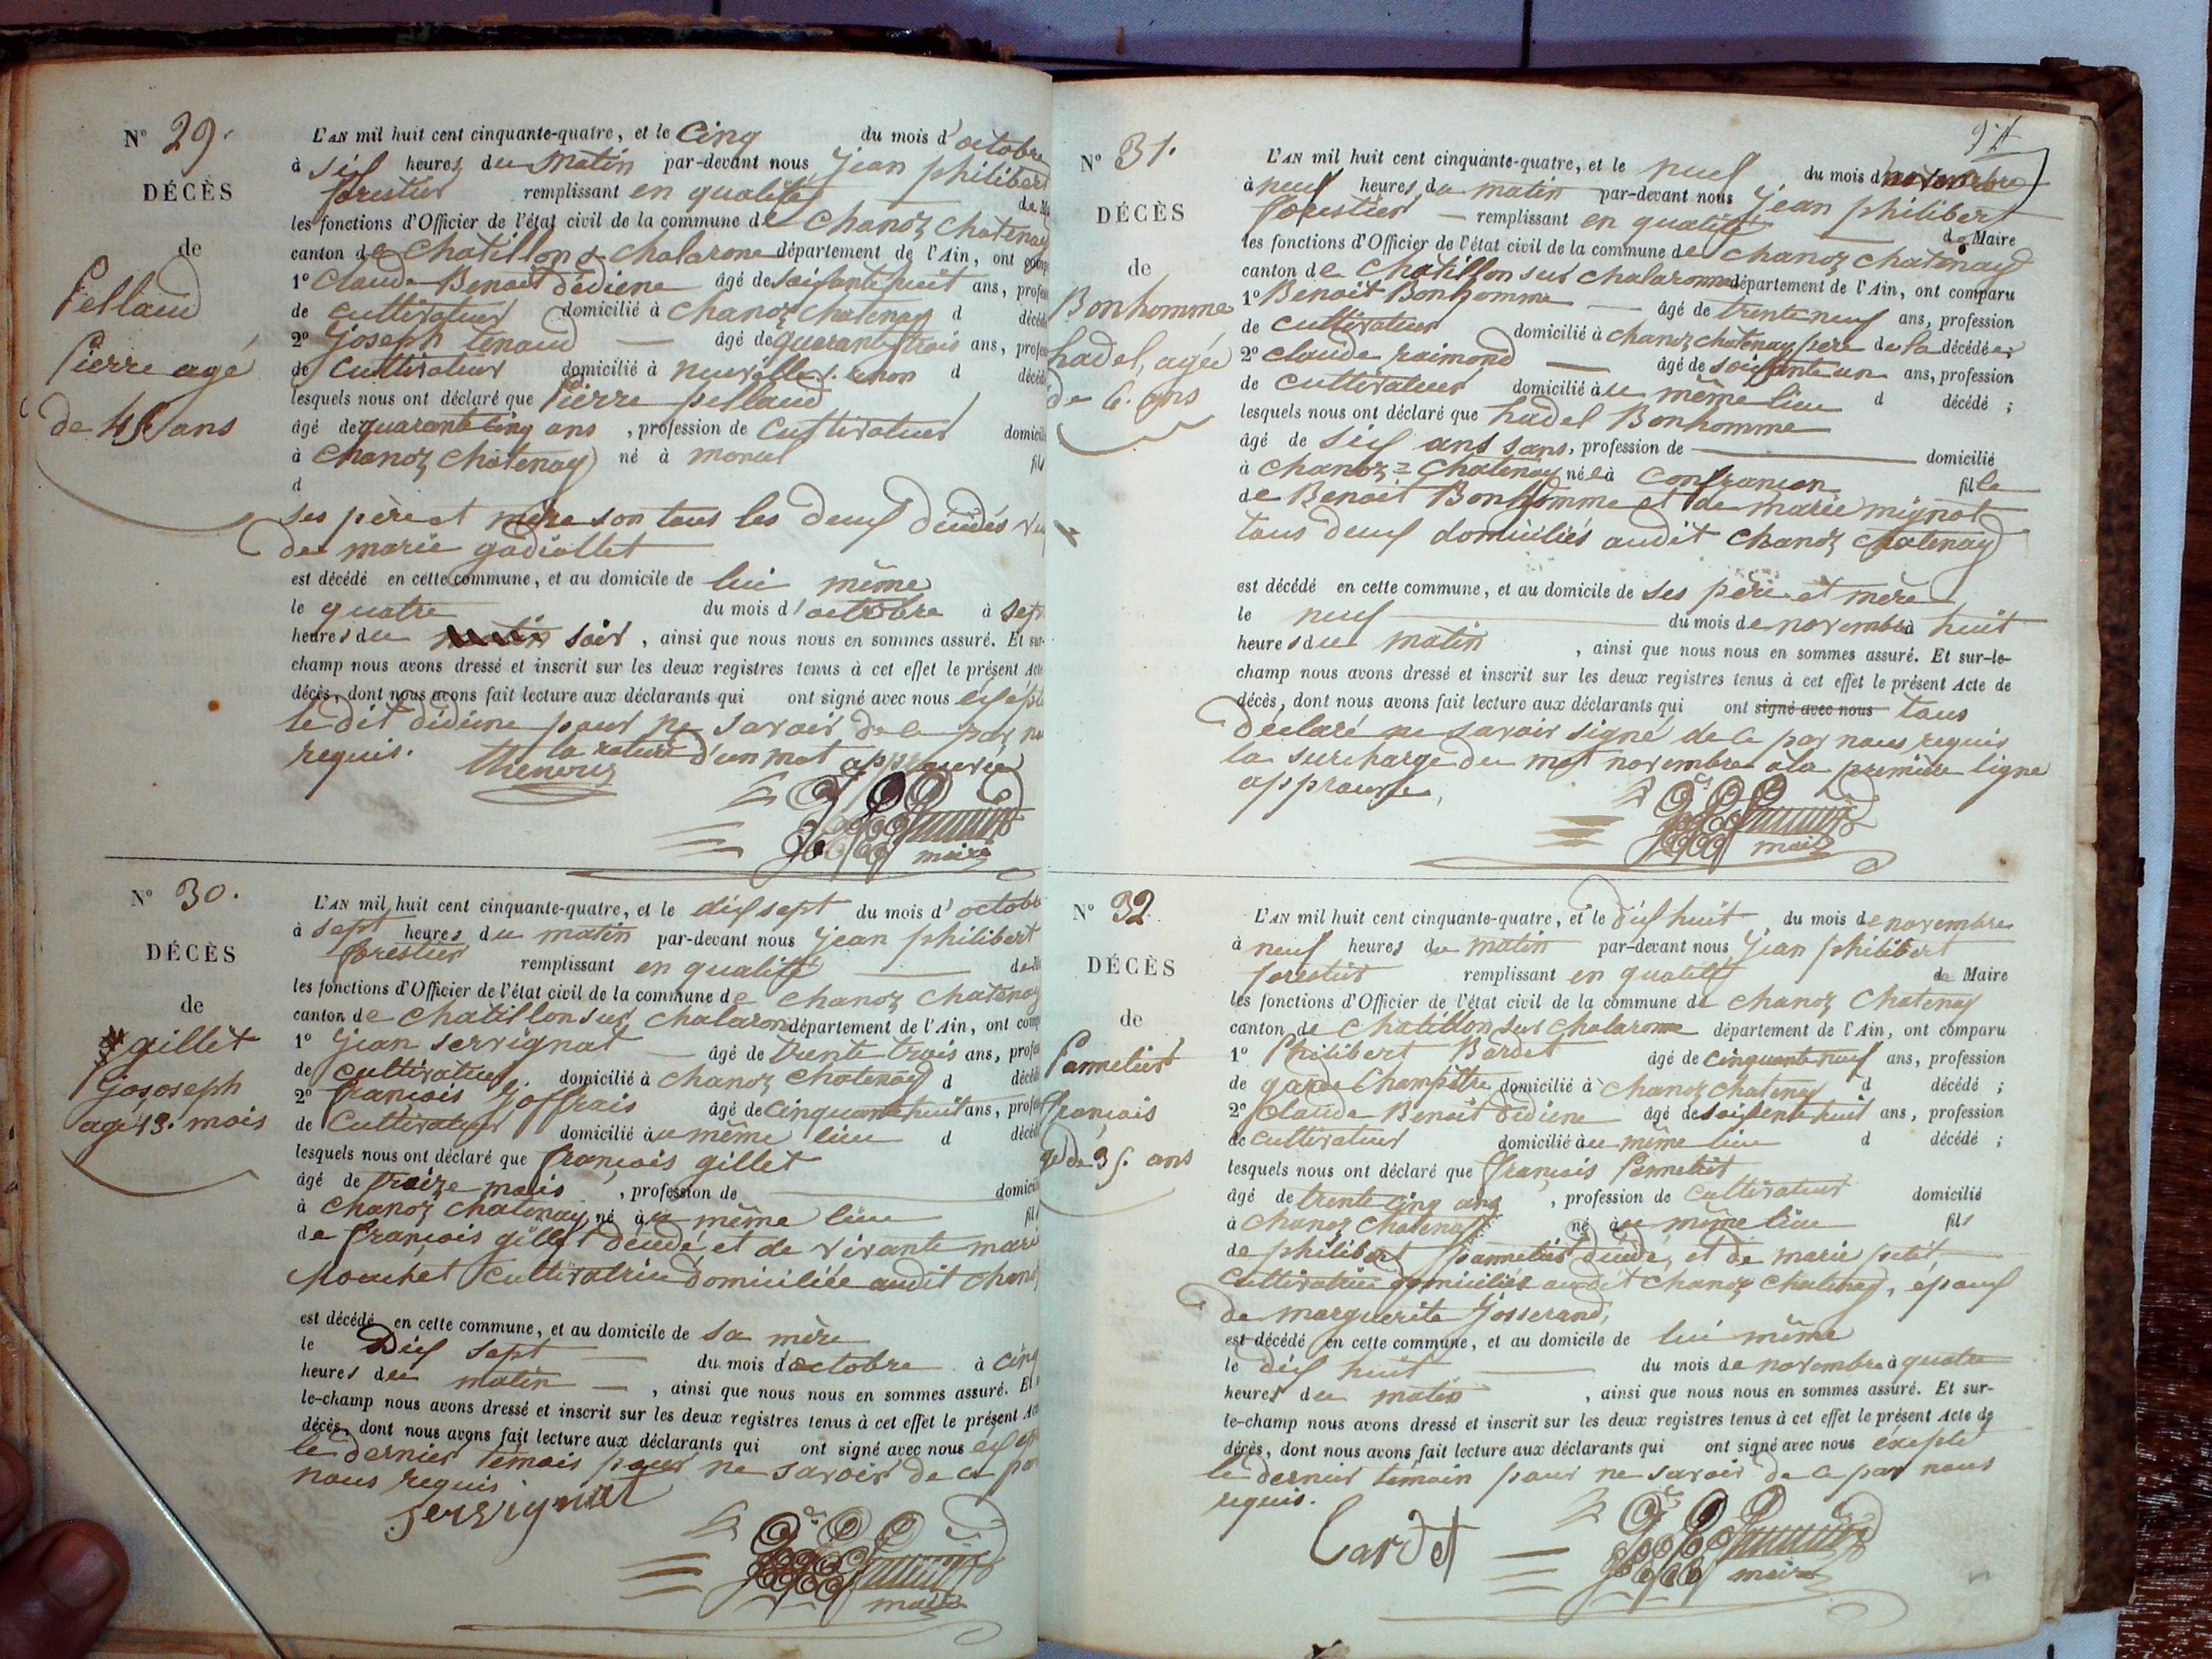 N° 29.
DÉCÈS
de
Pelland
Pierre agé
de 45 ans
L'AN mil huit cent cinquante-quatre, et le Cinq du mois d'octobre
à six heures du matin par-devant nous Jean philibert
forestier remplissant en qualité de
les fonctions d'Officier de l'état civil de la commune de Chanoz Chatenay
canton de Chatillon s. Chalarone département de l'Ain, ont
1° Claude Benoit dédiene âgé de soixante huit ans,
de cultivateur domicilié à Chanoz Chatenay d
2° Joseph tenaud âgé de quarante trois ans,
de Cultivateur domicilié à neuville s. renon d
lesquels nous ont déclaré que Pierre pelland
âgé de quarante Cinq ans, profession de Cultivateur
à Chanoz Chatenay né à
d
ses père et mère son tous les deux décidés
de marie gadiollet
est décédé en cette commune, et au domicile de lui même
le quatre du mois d'octobre à sept
heures du soir, ainsi que nous nous en sommes assuré. Et sur-
champ nous avons dressé et inscrit sur les deux registres tenus à cet effet le présent Acte
décès, dont nous avons fait lecture aux déclarants qui ont signé avec nous
le dit didiene pour ne savoir de ce par
requis. la rature d'un mot approuvée
maire
N° 30.
DÉCÈS
de
gillet
Gososeph
agé 13. mois
L'AN mil huit cent cinquante-quatre, et le dix sept du mois d'octobre
à sept heures du matin par-devant nous Jean philibert
forestier remplissant en qualité
les fonctions d'Officier de l'état civil de la commune de Chanoz Chatenay
canton de Chatillon sur Chalaron département de l'Ain, ont
1° Jean servignat âgé de trente trois ans,
de cultivateur domicilié à Chanoz Chatenay d
2° françois Joffrais âgé de cinquante huit ans,
de Cultivateur domicilié au même lieu d
lesquels nous ont déclaré que françois gillet
âgé de treize mois, profession de
à Chanoz Chatenay né au même lieu
de françois gillet décidé et de vivante
Mouchet Cultivatrice domiciliée audit
est décédé en cette commune, et au domicile de sa mère
le Dix sept du mois d'octobre à cinq
heures du matin, ainsi que nous nous en sommes assuré.
le-champ nous avons dressé et inscrit sur les deux registres tenus à cet effet le présent
décès, dont nous avons fait lecture aux déclarants qui ont signé avec nous
le dernier témois pour ne savoir de ce par
nous requis
servignat
maire
N° 31.
DÉCÈS
de
Bonhomme
hadel, agée
de 6. ans
L'AN mil huit cent cinquante-quatre, et le neuf du mois d novembre
à neuf heures du matin par-devant nous Jean philibert
forestier remplissant en qualité de Maire
les fonctions d'Officier de l'état civil de la commune de Chanoz Chatenay
canton de Chatillon sur Chalaronne département de l'Ain, ont comparu
1° Benoit Bonhomme âgé de trente neuf ans, profession
de cultivateur domicilié à Chanoz Chatenay père de la décédée
2° claude raimond âgé de soixante un ans, profession
de cultivateur domicilié au même lieu d décédé ;
lesquels nous ont déclaré que hadel Bonhomme
âgé de six ans sans, profession de domicilié
à Chanoz = Chatenay née à Confrançon fille
de Benoit Bonhomme et de marie mignot
tous deux domiciliés audit Chanoz Chatenay
est décédé en cette commune, et au domicile de ses père et mère
le neuf du mois de novembre à huit
heures du matin, ainsi que nous nous en sommes assuré. Et sur-le-
champ nous avons dressé et inscrit sur les deux registres tenus à cet effet le présent Acte de
décès, dont nous avons fait lecture aux déclarants qui ont signé avec nous tous
déclaré ne savoir signé de ce par nous requis
la surcharge du mot novembre a la première ligne
approuvé,
maire
N° 32.
DÉCÈS
de
Pannetier
françois
agé de 35. ans
L'AN mil huit cent cinquante-quatre, et le dix huit du mois de novembre
à neuf heures du matin par-devant nous Jean philibert
forestier remplissant en qualité de Maire
les fonctions d'Officier de l'état civil de la commune de Chanoz Chatenay
canton de Chatillon sur Chalaronne département de l'Ain, ont comparu
1° Philibert Bardet âgé de cinquante neuf ans, profession
de garde Champêtre domicilié à Chanoz Chateny d décédé ;
2° Claude Benoit Didiene âgé de soixente huit ans, profession
de cultivateur domicilié au même lieu d décédé ;
lesquels nous ont déclaré que françois Pannetier
âgé de trente cinq ans, profession de cultivateur domicilié
à Chanoz Chatenay né au même lieu fils
de philibert pannetier décidé, et de marie petit,
cultivatrice domiciliée audit Chanoz Chatenay, époux
de marguerite Josserand,
est décédé en cette commune, et au domicile de lui même
le dix huit du mois de novembre à quatre
heures du matin, ainsi que nous nous en sommes assuré. Et sur-
le-champ nous avons dressé et inscrit sur les deux registres tenus à cet effet le présent Acte de
décès, dont nous avons fait lecture aux déclarants qui ont signé avec nous éxepté
le dernier témoin pour ne savoir de ce par nous
requis.
Bardet
maire